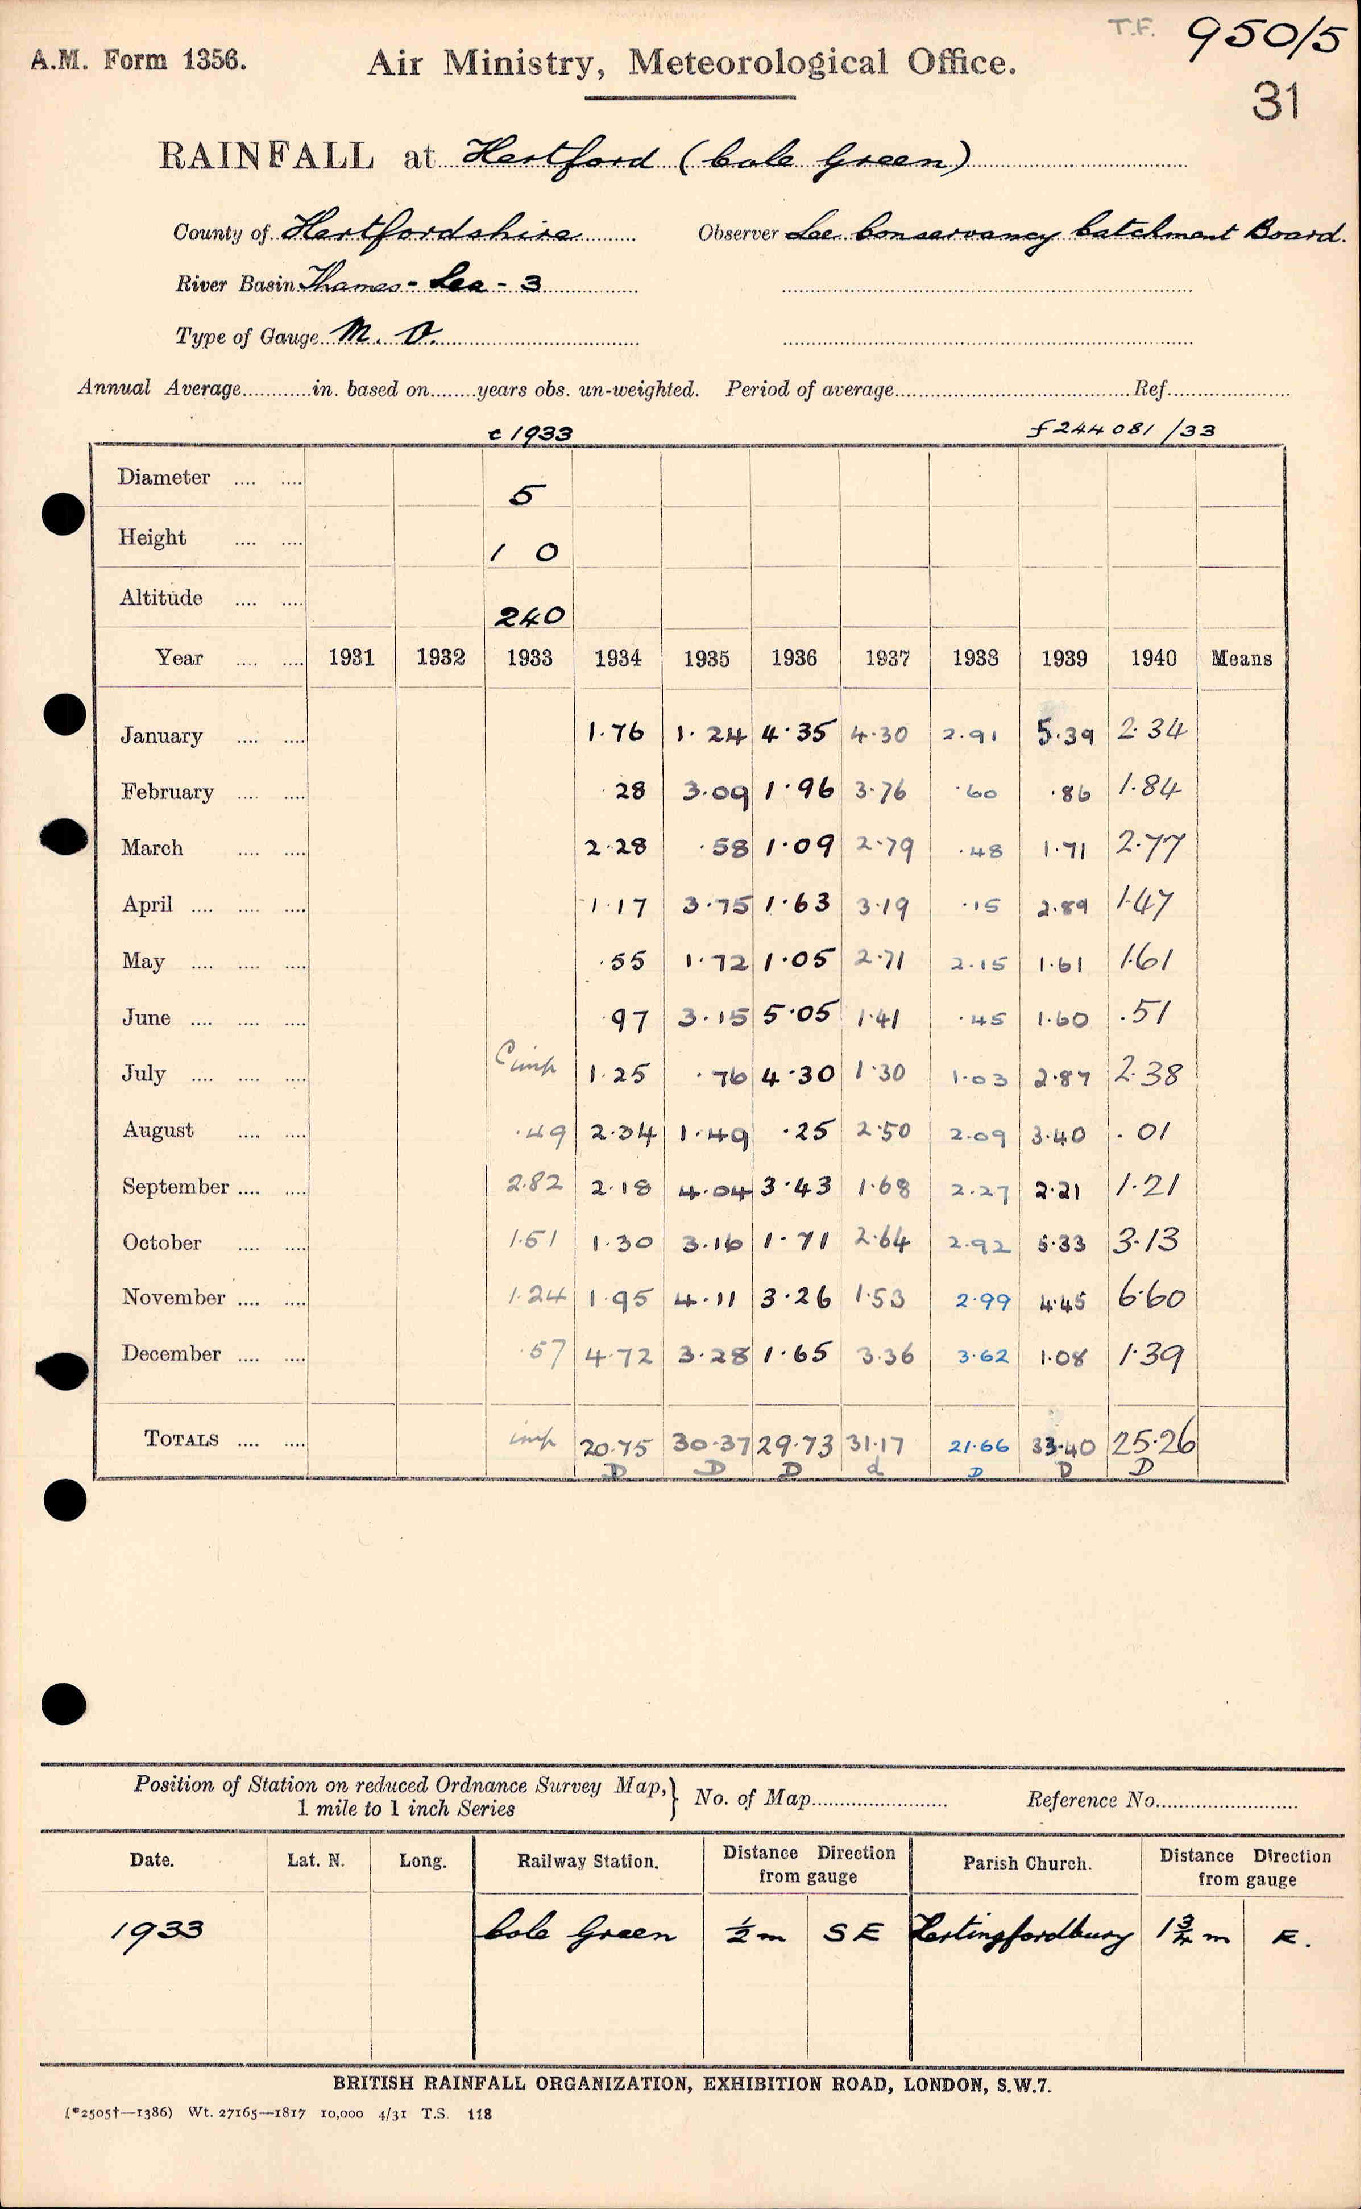 T.F. 950/5
A.M. Form 1356. Air Ministry, Meteorological Office.
31
RAINFALL at Hertford (Cole Green)
County of Hertfordshire Observer Lee Conservancy Catchment Board.
River Basin Thames - Lea - 3
Type of Gauge M. O.
Annual Average............in. based on........years obs. un-weighted. Period of average........................................Ref.....................
c 1933 f244081/33
Diameter .... .... 5
Height .... .... 1 0
Altitude .... .... 240
Year .... .... 1931 1932 1933 1934 1935 1936 1937 1938 1939 1940 Means
January .... .... 1.76 1.24 4.35 4.30 2.91 5.39 2.34
February .... .... .28 3.09 1.96 3.76 .60 .86 1.84
March .... .... 2.28 .58 1.09 2.79 .48 1.71 2.77
April .... .... .... 1.17 3.75 1.63 3.19 .15 2.89 1.47
May .... .... .... .55 1.72 1.05 2.71 2.15 1.61 1.61
June .... .... .... .97 3.15 5.05 1.41 .45 1.60 .51
July .... .... .... C imp 1.25 .76 4.30 1.30 1.03 2.87 2.38
August .... .... .49 2.34 1.49 .25 2.50 2.09 3.40 .01
September .... .... 2.82 2.18 4.04 3.43 1.68 2.27 2.21 1.21
October .... .... 1.51 1.30 3.16 1.71 2.64 2.92 5.33 3.13
November .... .... 1.24 1.95 4.11 3.26 1.53 2.99 4.45 6.60
December .... .... .57 4.72 3.28 1.65 3.36 3.62 1.08 1.39
TOTALS .... .... imp 20.75 30.37 29.73 31.17 21.66 33.40 25.26
D D D d D D D
Position of Station on reduced Ordnance Survey Map, } No. of Map........................ Reference No.........................
1 mile to 1 inch Series
Date. Lat. N. Long. Railway Station. Distance Direction Parish Church. Distance Direction
from gauge from gauge
1933 Cole Green ½ m S E Hertingfordbury 1¾ m E.
BRITISH RAINFALL ORGANIZATION, EXHIBITION ROAD, LONDON, S.W.7.
(*2505†—1386) Wt. 27165—1817 10,000 4/31 T.S. 118